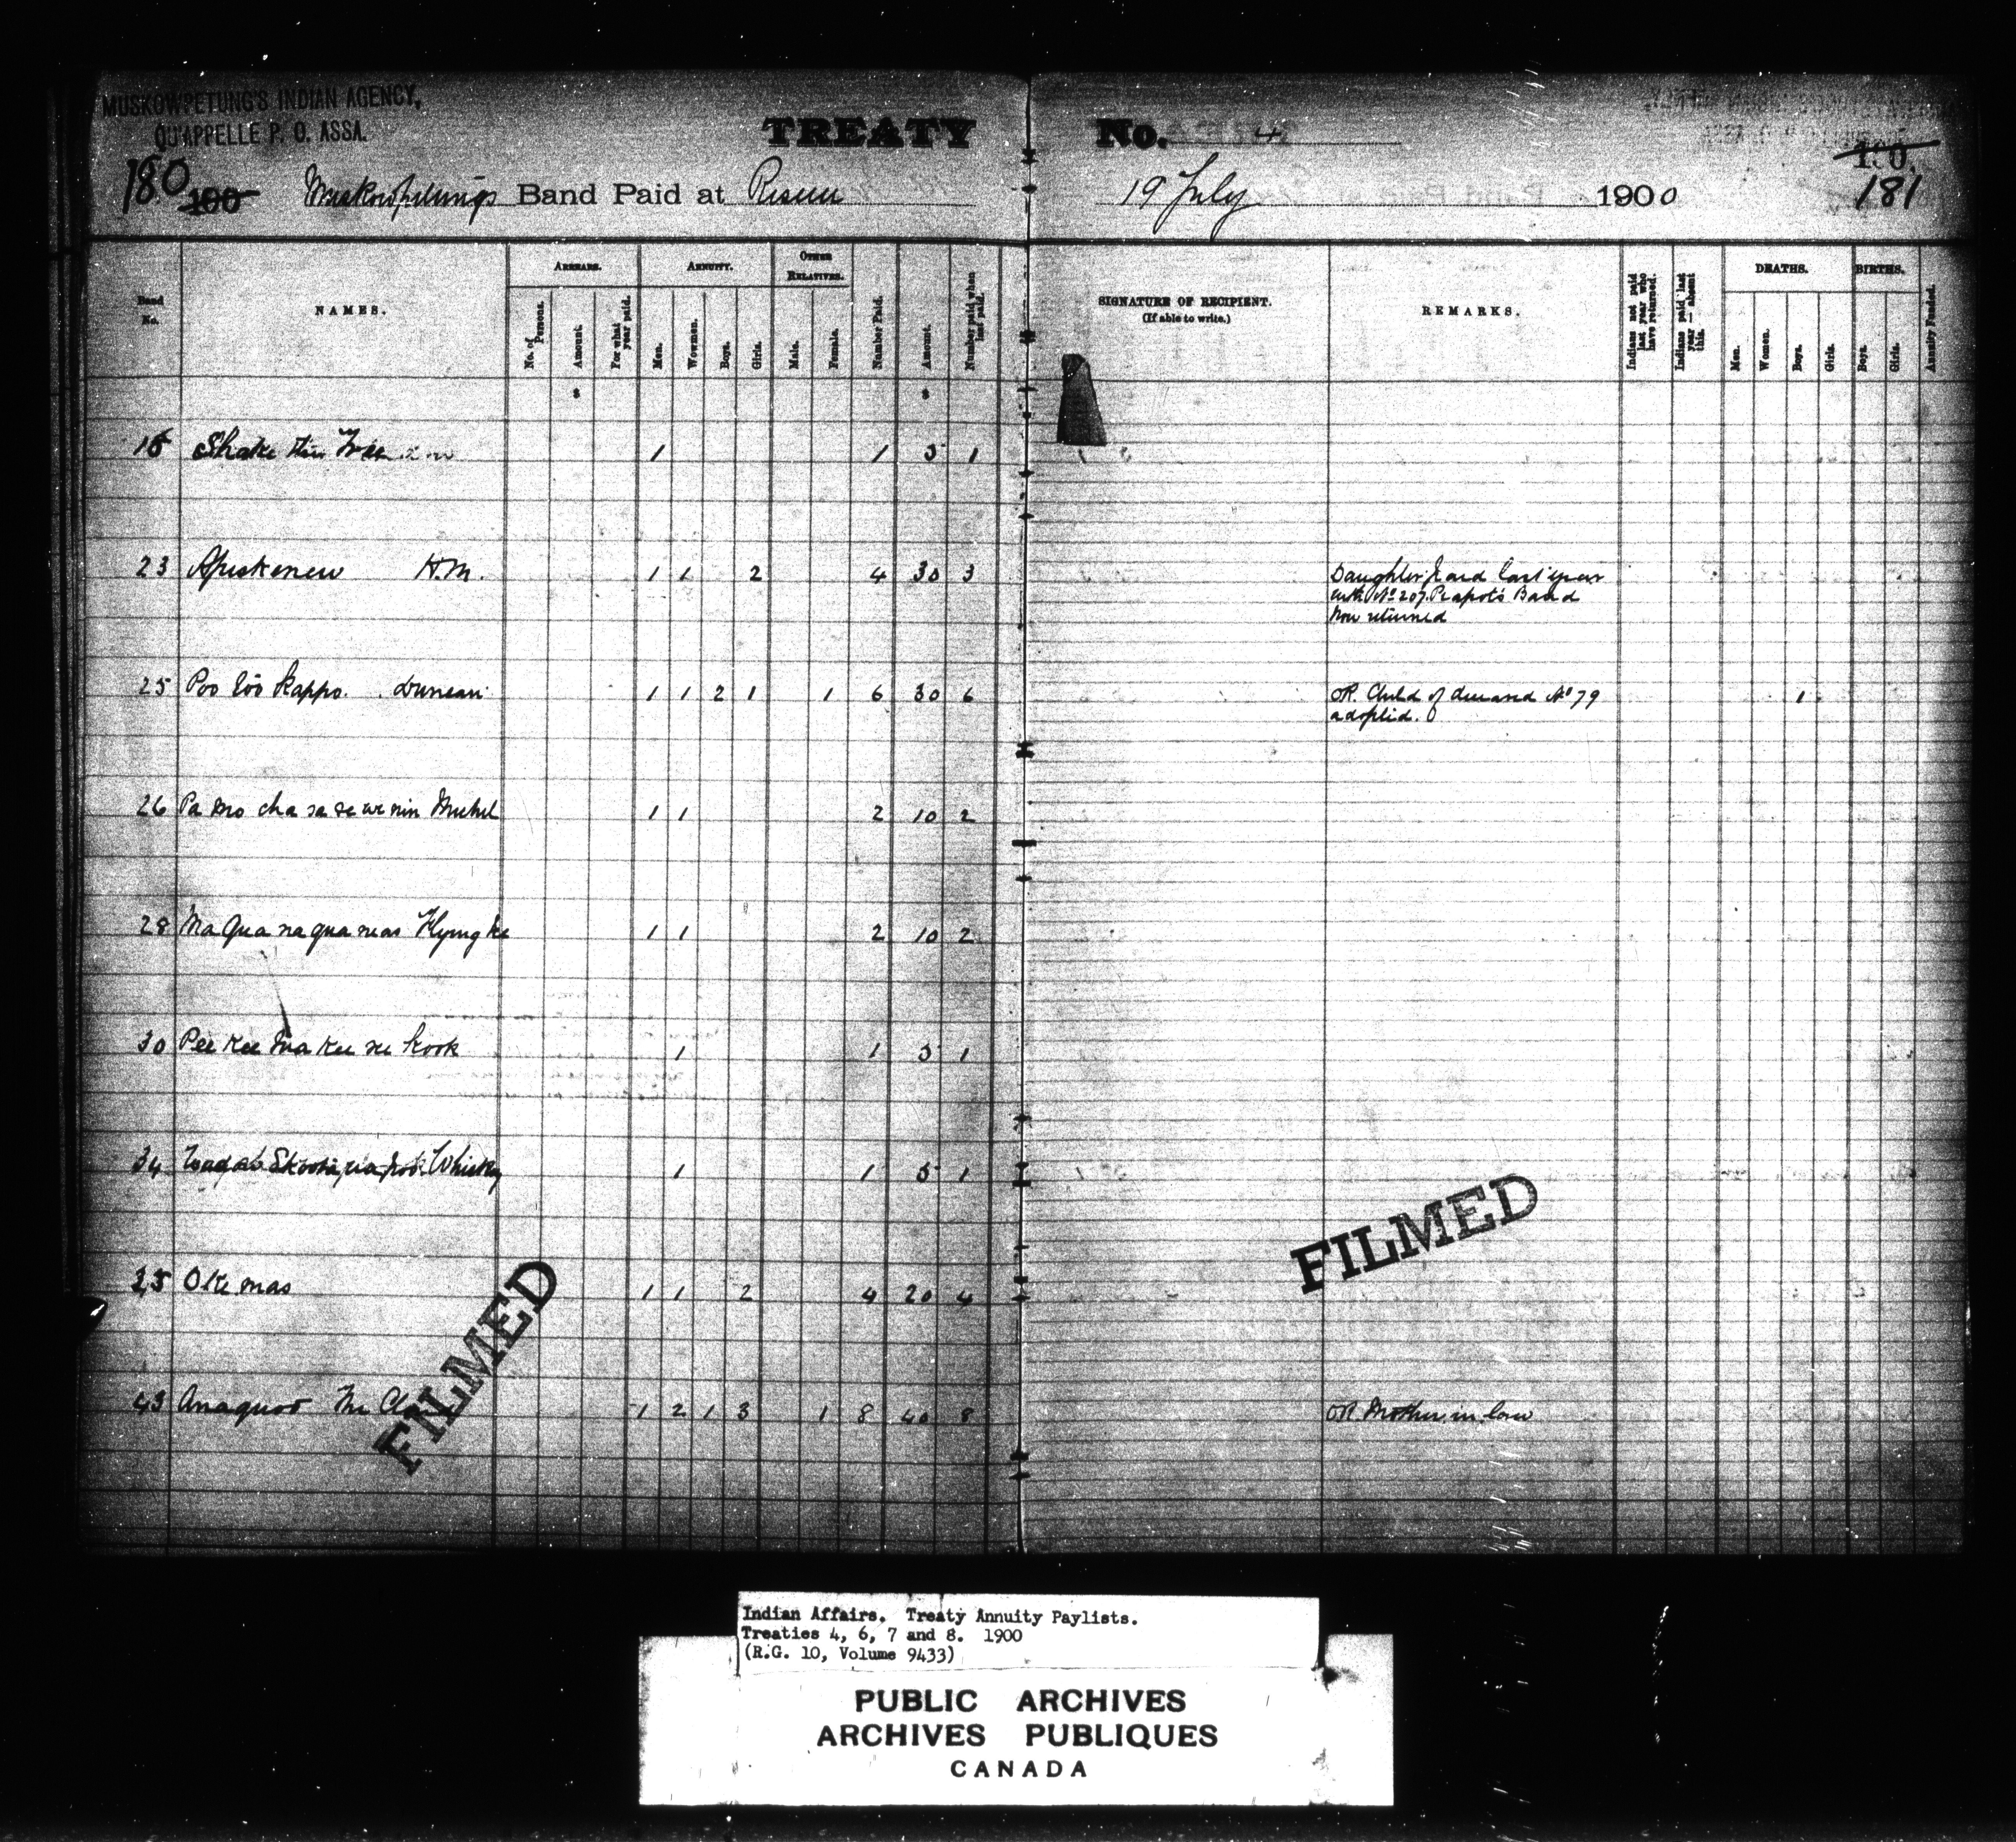 MUSKOWPETUNG'S INDIAN AGENCY,
QU'APPELLE P. O. ASSA.
TREATY No. 4
180 100 Muskowpetungs Band Paid at Reserve 19 July 1900
190
181
Band No.
NAMES.
ARREARS.
No. of Persons.
Amount.
For what year paid.
ANNUITY.
Men.
Wowmen.
Boys.
Girls.
OTHER RELATIVES.
Male.
Female.
Number Paid.
Amount.
Number paid when last paid.
SIGNATURE OF RECIPIENT.
(If able to write.)
REMARKS.
Indians not paid last year who have returned.
Indians paid last year — absent this.
DEATHS.
Men.
Women.
Boys.
Girls.
BIRTHS.
Boys.
Girls.
Annuity Funded.
$ $
Shake 1 1 5 1
23 Apiskenew H.M. 1 1 2 4 30 3 Daughter paid last year
with No 207 Peapots Band
now returned
25 Poo Kappo. Duncan 1 1 2 1 1 6 30 6 OR. Child of No 79 1
adopted.
26 Pa mo cha sa se we nin Michel 1 1 2 10 2
28 Na Qua na qua neas 1 1 2 10 2
30 Pee Kee Na Kee 1 1 5 1
34 Whisky 1 1 5 1
35 Oke mas 1 1 2 4 20 4
43 Anaquod 1 2 1 3 1 8 40 8 OR. Mother in law
FILMED
FILMED
Indian Affairs. Treaty Annuity Paylists.
Treaties 4, 6, 7 and 8. 1900
(R.G. 10, Volume 9433)
PUBLIC ARCHIVES
ARCHIVES PUBLIQUES
CANADA